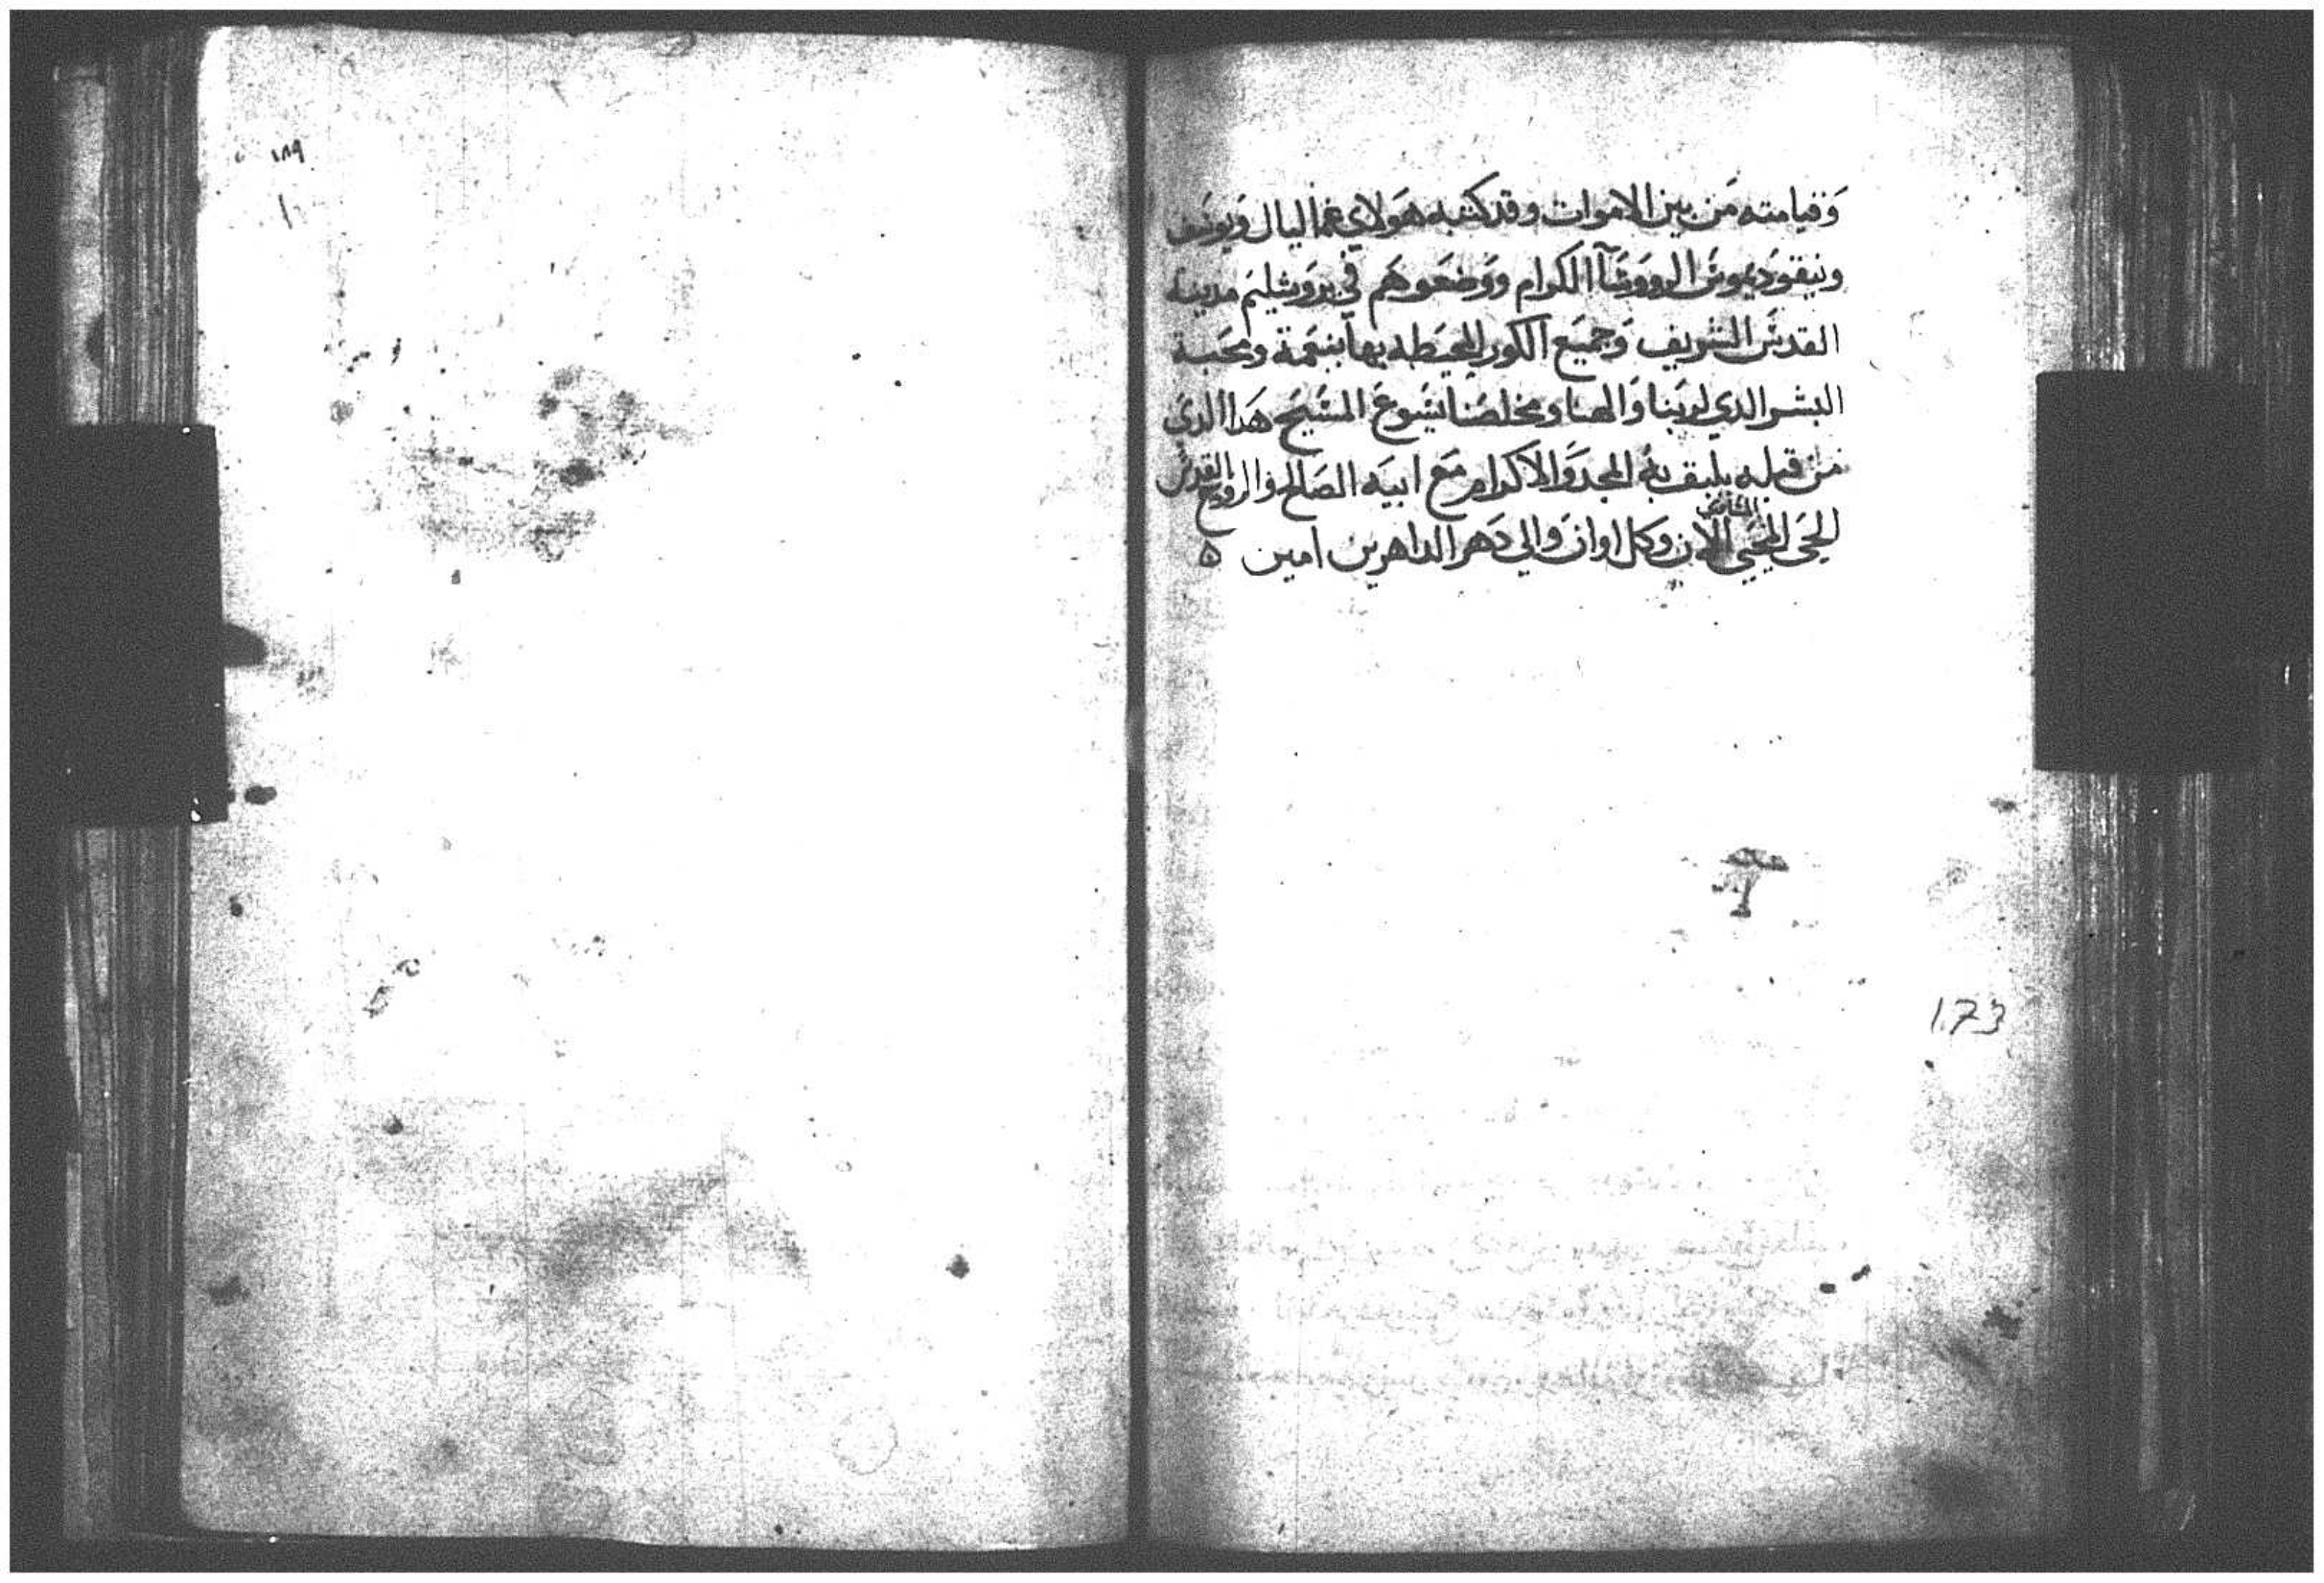 وَقيامته مَن بين الاموات وقد كتبه هَولاي غمالیال وَيوسَف
ونيقوديموسَ الرووسَآ الكرام ووَضعَوهَم في يروَشليَم مدينة
القدسَ الشريف وَجميَع الكور المحيَطه بها بنعَمة ومحَبة
البشر الدي لربنا وَالهنا ومخلصَنا يسَوعَ المسَيحَ هَدا الدي
من قبله يليق به المجد وَالاكرام مَع ابيَه الصَالح والروح القدسَ
الحَي المحيَي الان وكل اوان وَالي دَهر الداهرين امين ه
١٨٩
173